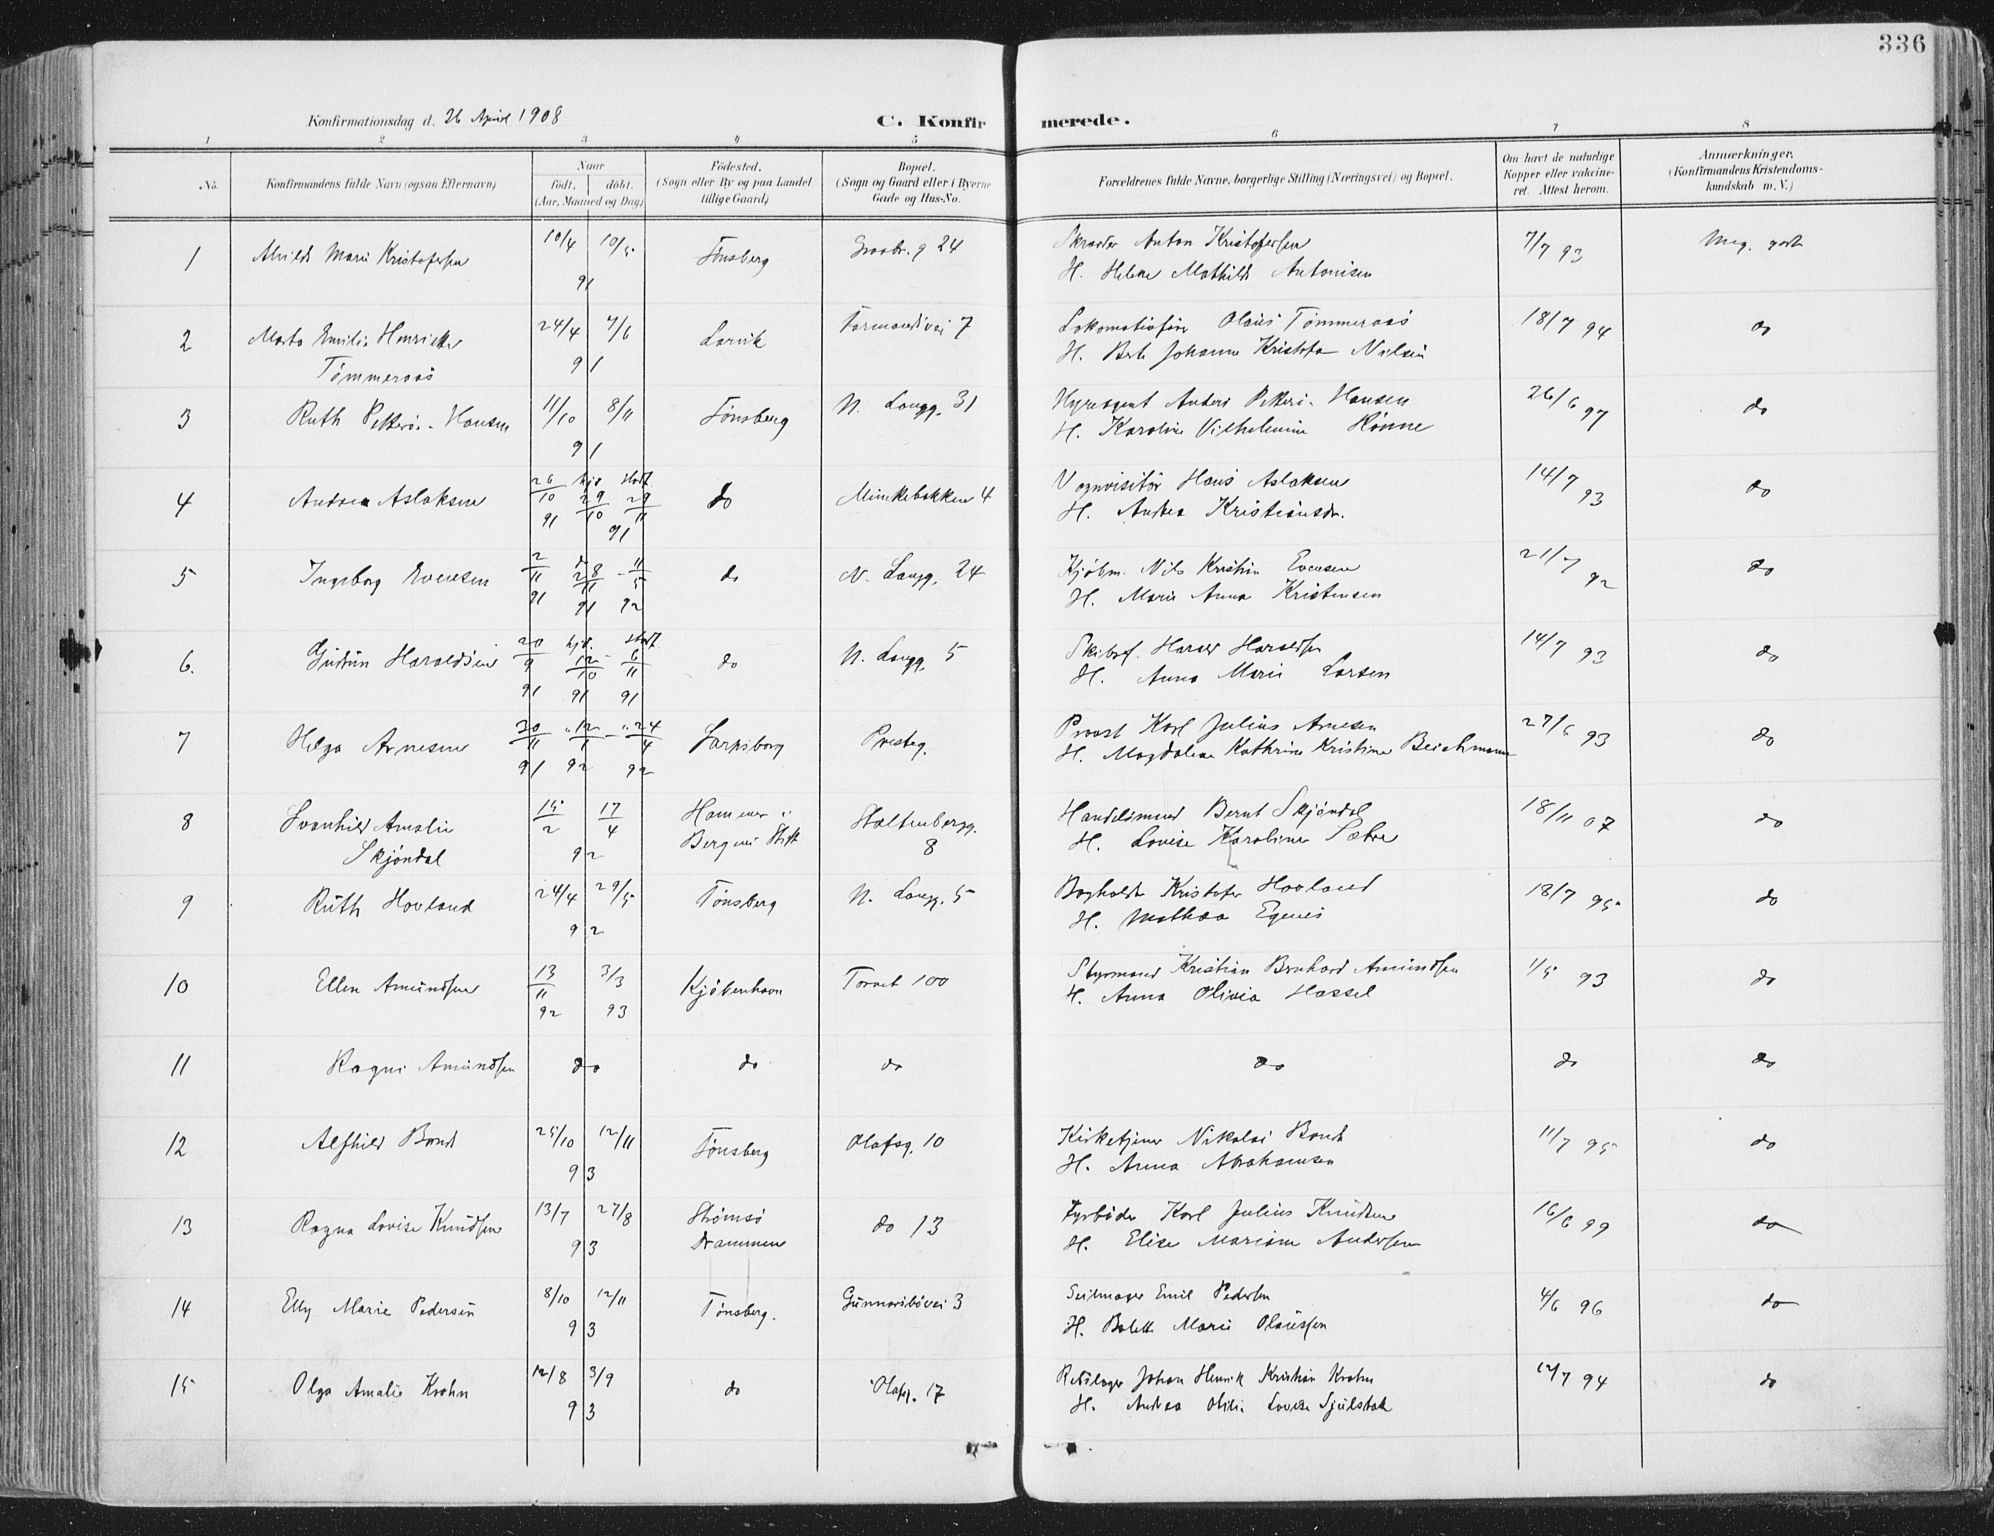 336
Konfirmationsdag d. 26 April 1908
C. Konfirmerede.
1 2 3 4 5 6 7 8
No.
Konfirmandens fulde Navn (ogsaa Efternavn)
Naar
födt. döbt.
(Aar, Maaned og Dag)
Födested.
(Sogn eller By og paa Landet
tillige Gaard)
Bopæl.
(Sogn og Gaard eller i Byerne
Gade og Hus-No.
Forældrenes fulde Navne, borgerlige Stilling (Næringsvei) og Bopæl.
Om havt de naturlige
Kopper eller vakcine-
ret. Attest herom.
Anmærkninger.
(Konfirmandens Kristendoms-
kundskab m. V.)
1 Alvilde Marie Kristofersen 10/4 10/5 91 Tönsberg Graabr. g 24 Skrædder Anton Kristofersen 7/7 93 Meg. godt
H. Helene Mathilde Antonisen
2 Marta Emilie Henriette 24/4 7/6 91 Larvik Farmandsvei 7 Lokomotivförer Olaus Tömmeraas 18/7 94 do
Tömmeraas H. Johanne Kristofa Nilsen
3 Ruth Hansen 11/10 8/11 91 Tönsberg N. Langg. 31 Hyreagent Anders Hansen 26/6 97 do
H. Karoline Vilhelmine Rönne
4 Andrea Aslaksen 26/10 91 hjd. 29/10 Stadf. 29/11 91 do Munkebakken 4 Vognvisitör Hans Aslaksen 14/7 93 do
H. Andrea Kristiansdr.
5 Ingeborg Evensen 2/11 91 28/11 91 - 11/5 92 do N. Langg. 24 Kjöbm. Nils Kristian Evensen 21/7 92 do
H. Marie Anna Kristensen
6. Gudrun Haraldsen 20/9 91 hjd. 12/10 91 - Stadf. 6/11 91 do N. Langg. 5 Skibsf. Harald Haraldsen 14/7 93 do
H. Anna Marie Larsen
7 Helga Arnesen 30/11 91 12/1 92 - 24/4 92 Sarpsborg Presteg. Provst Karl Julius Arnesen 27/6 93 do
H. Magdalena Kathrine Kristine Beichmann
8 Svanhild Amalie 15/2 17/4 92 Hammer i Stoltenbergg. Handelsmand Bernt Skjöndal 18/11 07 do
Skjöndal Bergens Stift 8 H. Lovise Karoline Sætre
9 Ruth Hovland 24/4 29/5 92 Tönsberg N. Langg. 5 Bogholder Kristofer Hovland 18/7 95 do
H. Mathea Egenes
10 Ellen Amundsen 13/11 92 3/3 93 Kjöbenhavn Torvet 100 Styrmand Kristian Bernhard Amundsen 1/5 93 do
H. Anna Olivia Hassel
11 Ragni Amundsen do do do do do do
12 Alfhild Bondt 25/10 12/11 93 Tönsberg Olafsg. 10 Kirketjener Nikolai Bondt 11/7 95 do
H. Anna Abrahamsen
13 Ragna Lovise Knudsen 13/7 27/8 93 Strömsö do 13 Fyrböder Karl Julius Knudsen 16/6 99 do
Drammen H. Elise Mariane Andersen
14 Elly Marie Pedersen 8/10 12/11 93 Tönsberg. Gunnarsbövei 3 Seilmager Emil Pedersen 4/6 96 do
H. Bolette Marie Olaussen
15 Olga Amalie Krohn 12/8 3/9 93 do Olafsg. 17 Rebslager Johan Henrik Kristian Krohn 12/7 94 do
H. Andrea Otilie Lovise